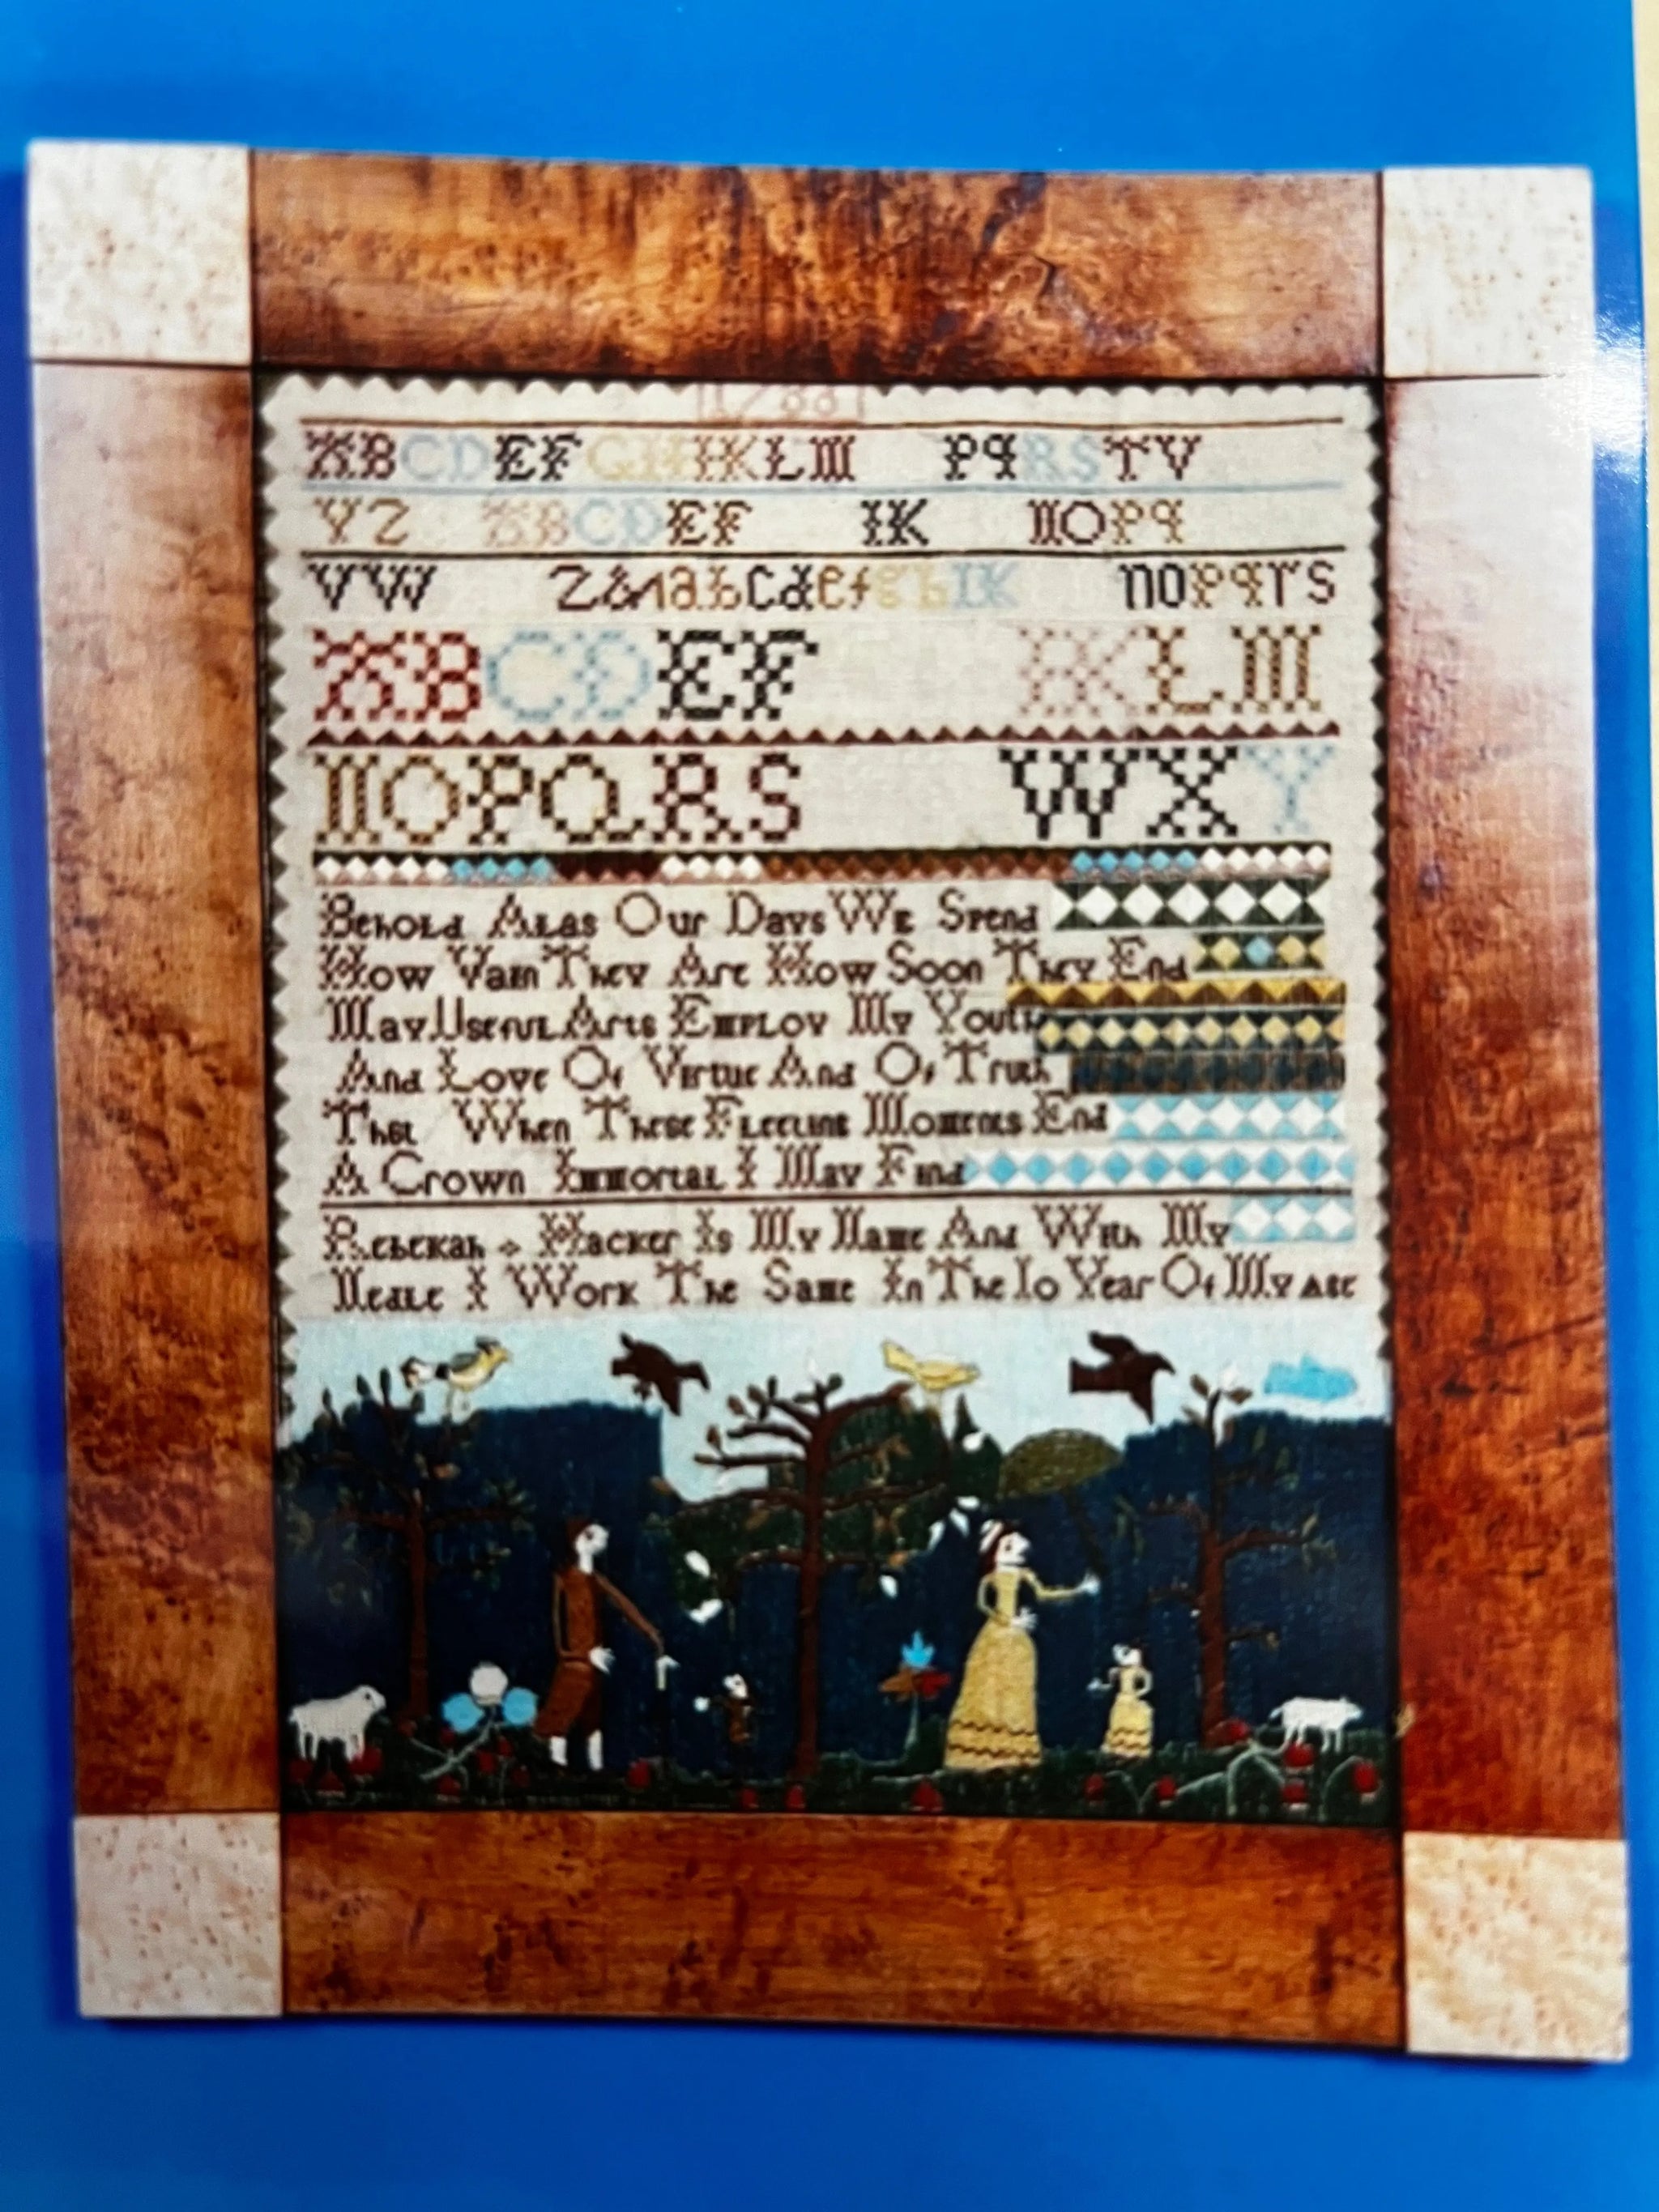 ABCDEFGHIKLM PQRSTV
YZ ABCDEF IK NOPQ
VW Z&abcdefghIK nopqrs
ABCDEF IKLM
NOPQRS WXY
Behold Alas Our Days We Spend
How Vain They Are How Soon They End
May Useful Arts Employ My Youth
And Love Of Virtue And Of Truth
That When These Fleeting Moments End
A Crown Immortal I May Find
Rebekah Hacker Is My Name And With My
Nedle I Work The Same In The 10 Year Of My Age